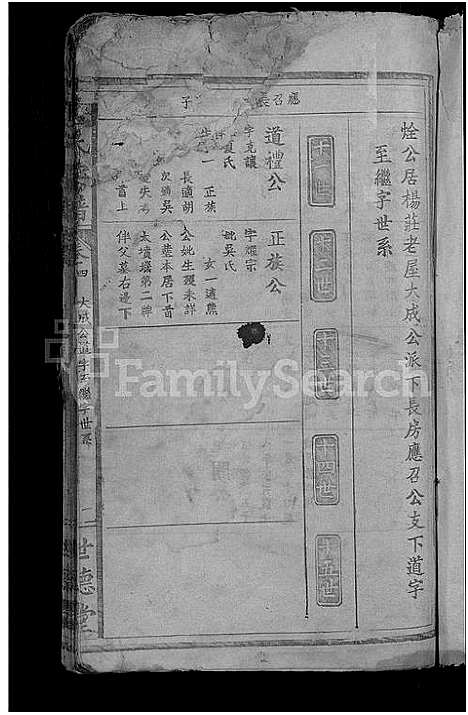 烇公居楊莊老屋大成公派下長房應召公支下道字
至繼字世系
十一世
十二世
十三世
十四世
十五世
應召長子
道禮公
字克讓
夏氏
生一 正族
長適胡
次適吳
失
首上
正族公
字耀宗
妣吳氏
女一適熊
公妣生殁未詳
公塟本居下首
太墳塝第二牌
伴父墓右邊下
卷四
大成公道字至繼字世系
世德堂
FamilySearch